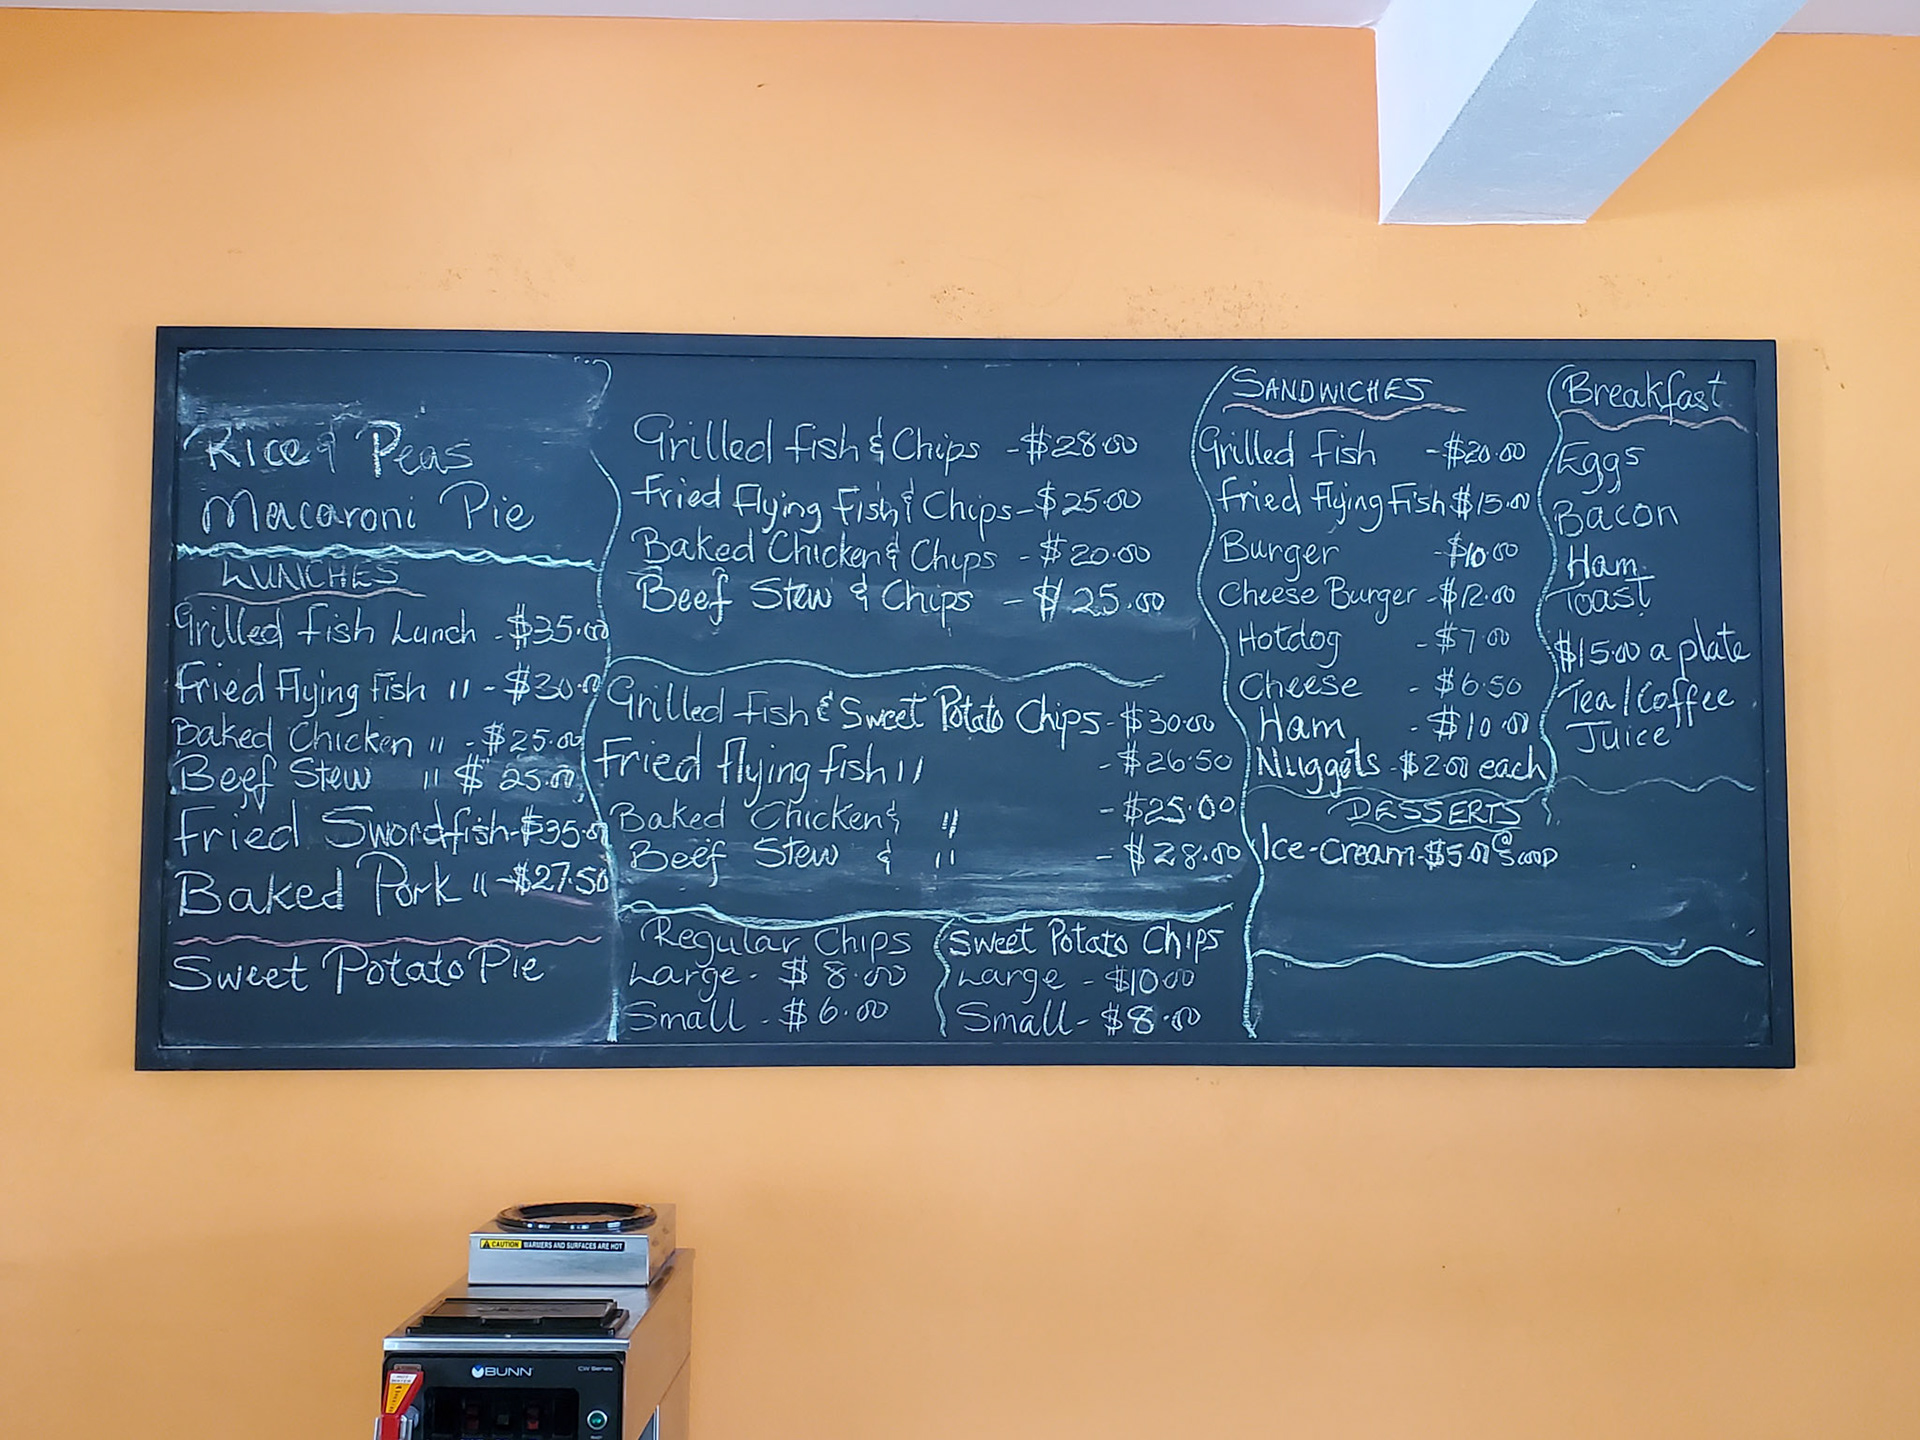 Rice & Peas
Macaroni Pie
LUNCHES
Grilled Fish Lunch - $35.00
Fried Flying Fish " - $30.00
Baked Chicken " - $25.00
Beef Stew " $ 25.00
Fried Swordfish - $35.00
Baked Pork " - $27.50
Sweet Potato Pie
Grilled Fish & Chips - $28.00
Fried Flying Fish & Chips - $25.00
Baked Chicken & Chips - $20.00
Beef Stew & Chips - $25.00
Grilled Fish & Sweet Potato Chips - $30.00
Fried Flying Fish " - $26.50
Baked Chicken & " - $25.00
Beef Stew & " - $28.00
Regular Chips
Large - $8.00
Small - $6.00
Sweet Potato Chips
Large - $10.00
Small - $8.00
SANDWICHES
Grilled Fish - $20.00
Fried Flying Fish $15.00
Burger - $10.00
Cheese Burger - $12.00
Hotdog - $7.00
Cheese - $6.50
Ham - $10.00
Nuggets - $2.00 each
DESSERTS
Ice-cream - $5.00 @ Scoop
Breakfast
Eggs
Bacon
Ham
Toast
$15.00 a plate
Tea/Coffee
Juice
CAUTION WARMERS AND SURFACES ARE HOT
BUNN
CW Series